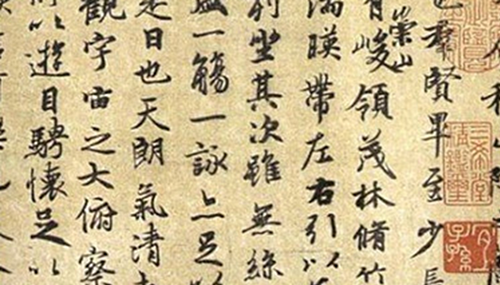 也羣賢畢至少長
有崇山峻領茂林脩竹
湍暎帶左右引以
列坐其次雖無絲
盛一觴一詠亦足以
是日也天朗氣清
觀宇宙之大俯察
所以遊目騁懷足以
三希堂精鑑璽
宜子孫